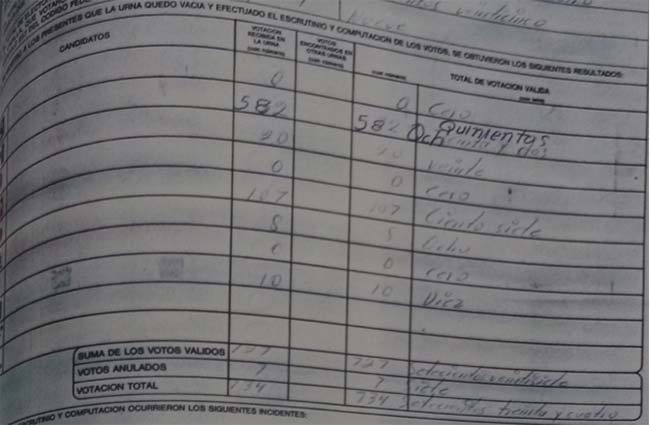 Nueve
veinticinco
A LOS PRESENTES QUE LA URNA QUEDO VACIA Y EFECTUADO EL ESCRUTINIO Y COMPUTACION DE LOS VOTOS, SE OBTUVIERON LOS SIGUIENTES RESULTADOS:
CANDIDATOS VOTACION RECIBIDA EN LA URNA (CON NUMERO) VOTOS ENCONTRADOS EN OTRAS URNAS (CON NUMERO) (CON NUMERO) TOTAL DE VOTACION VALIDA
0 0 Cero
582 582 Quinientas Ochenta y dos
20 20 veinte
0 0 Cero
107 107 Ciento siete
8 8 Ocho
0 0 Cero
10 10 Diez
SUMA DE LOS VOTOS VALIDOS 727 727 Setecientos veintisiete
VOTOS ANULADOS 7 7 Siete
VOTACION TOTAL 734 734 Setecientos treinta y cuatro
ESCRUTINIO Y COMPUTACION OCURRIERON LOS SIGUIENTES INCIDENTES: